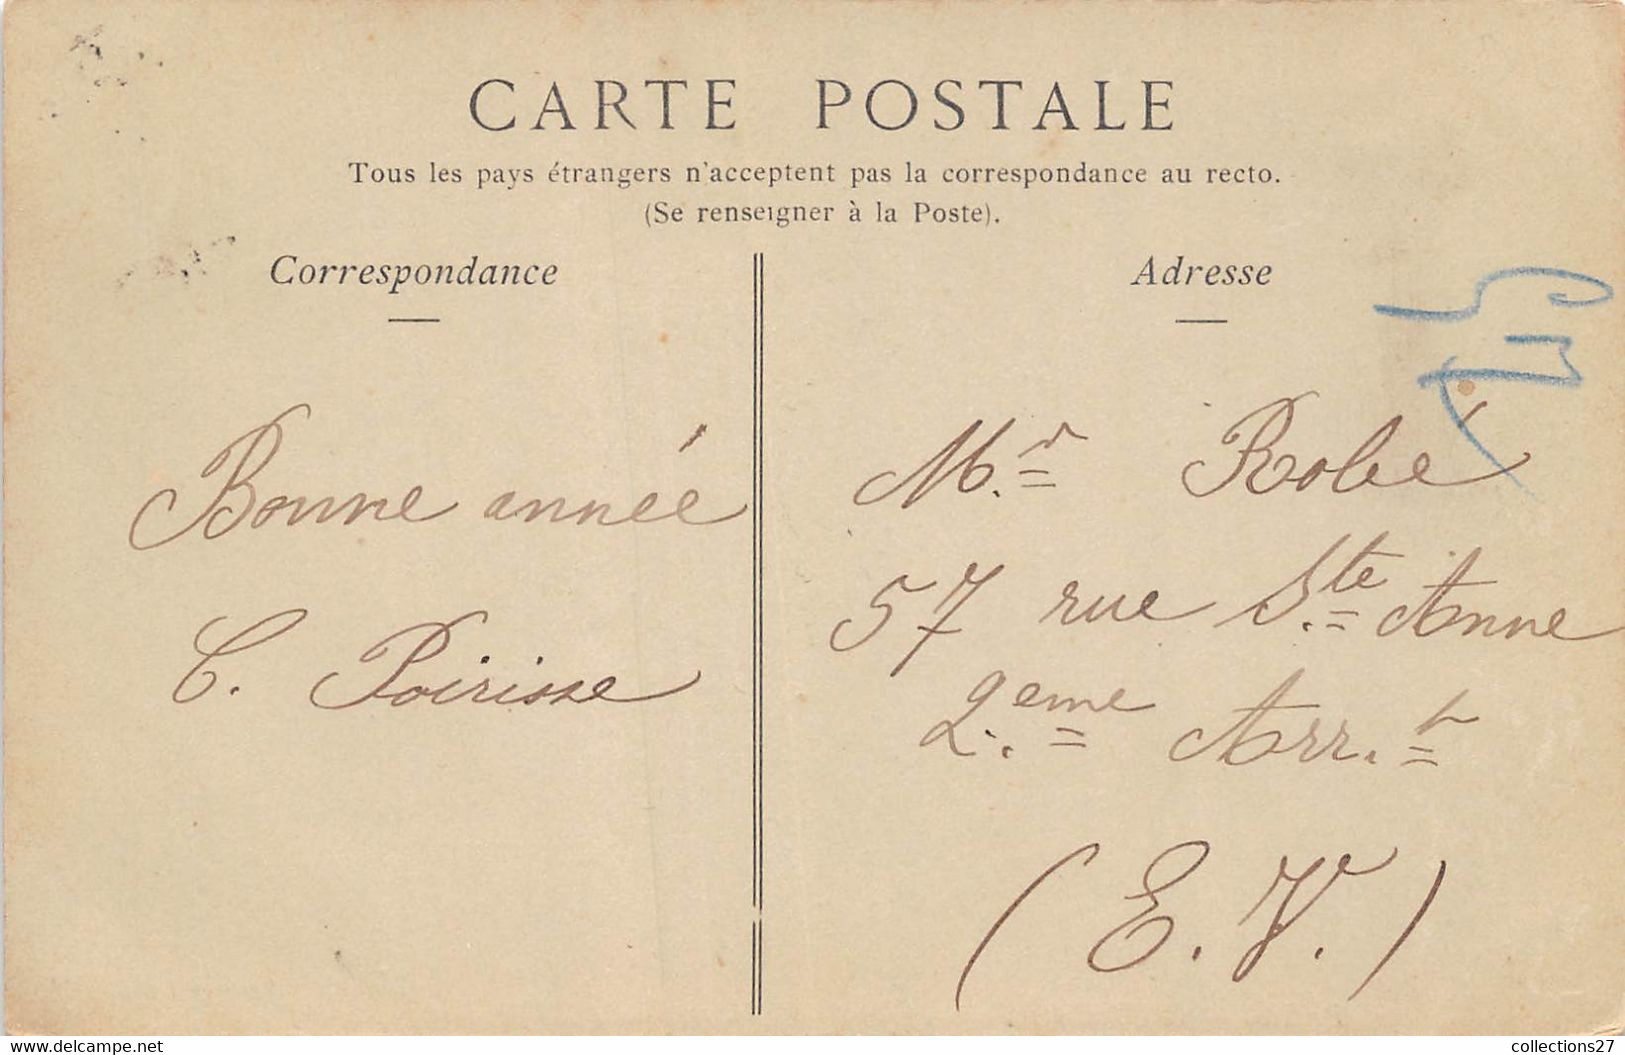 CARTE POSTALE
Tous les pays étrangers n'acceptent pas la correspondance au recto.
(Se renseigner à la Poste).
Correspondance
Bonne année
C. Poirisse
Adresse
Mr. Robé
57 rue Ste. Anne
2.eme Arr.t
(E. V.)
www.delcampe.net
collections27